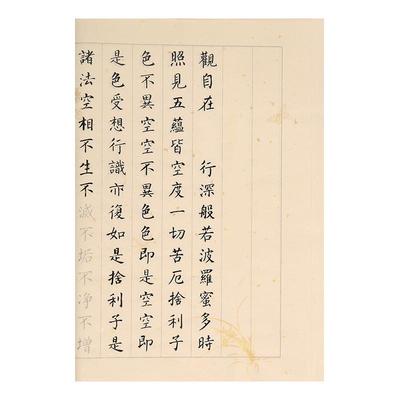 觀自在　　行深般若波羅蜜多時
照見五蘊皆空度一切苦厄捨利子
色不異空空不異色色即是空空即
是色受想行識亦復如是捨利子是
諸法空相不生不滅不垢不净不增